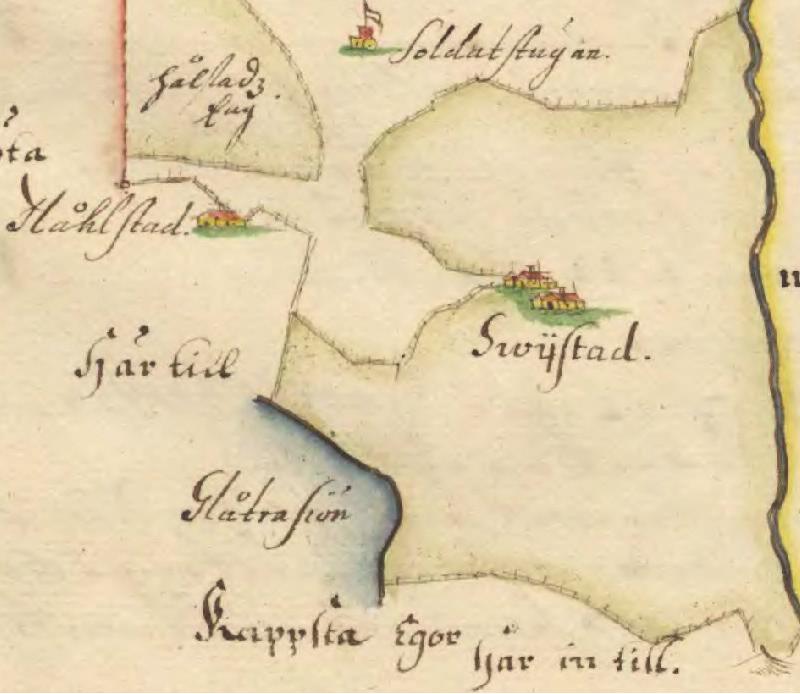 Soldatstugan.
hålstadz
Håhlstad.
Swijstad.
Här till
Glåtrasiön
Kappsta Egor
här in till.